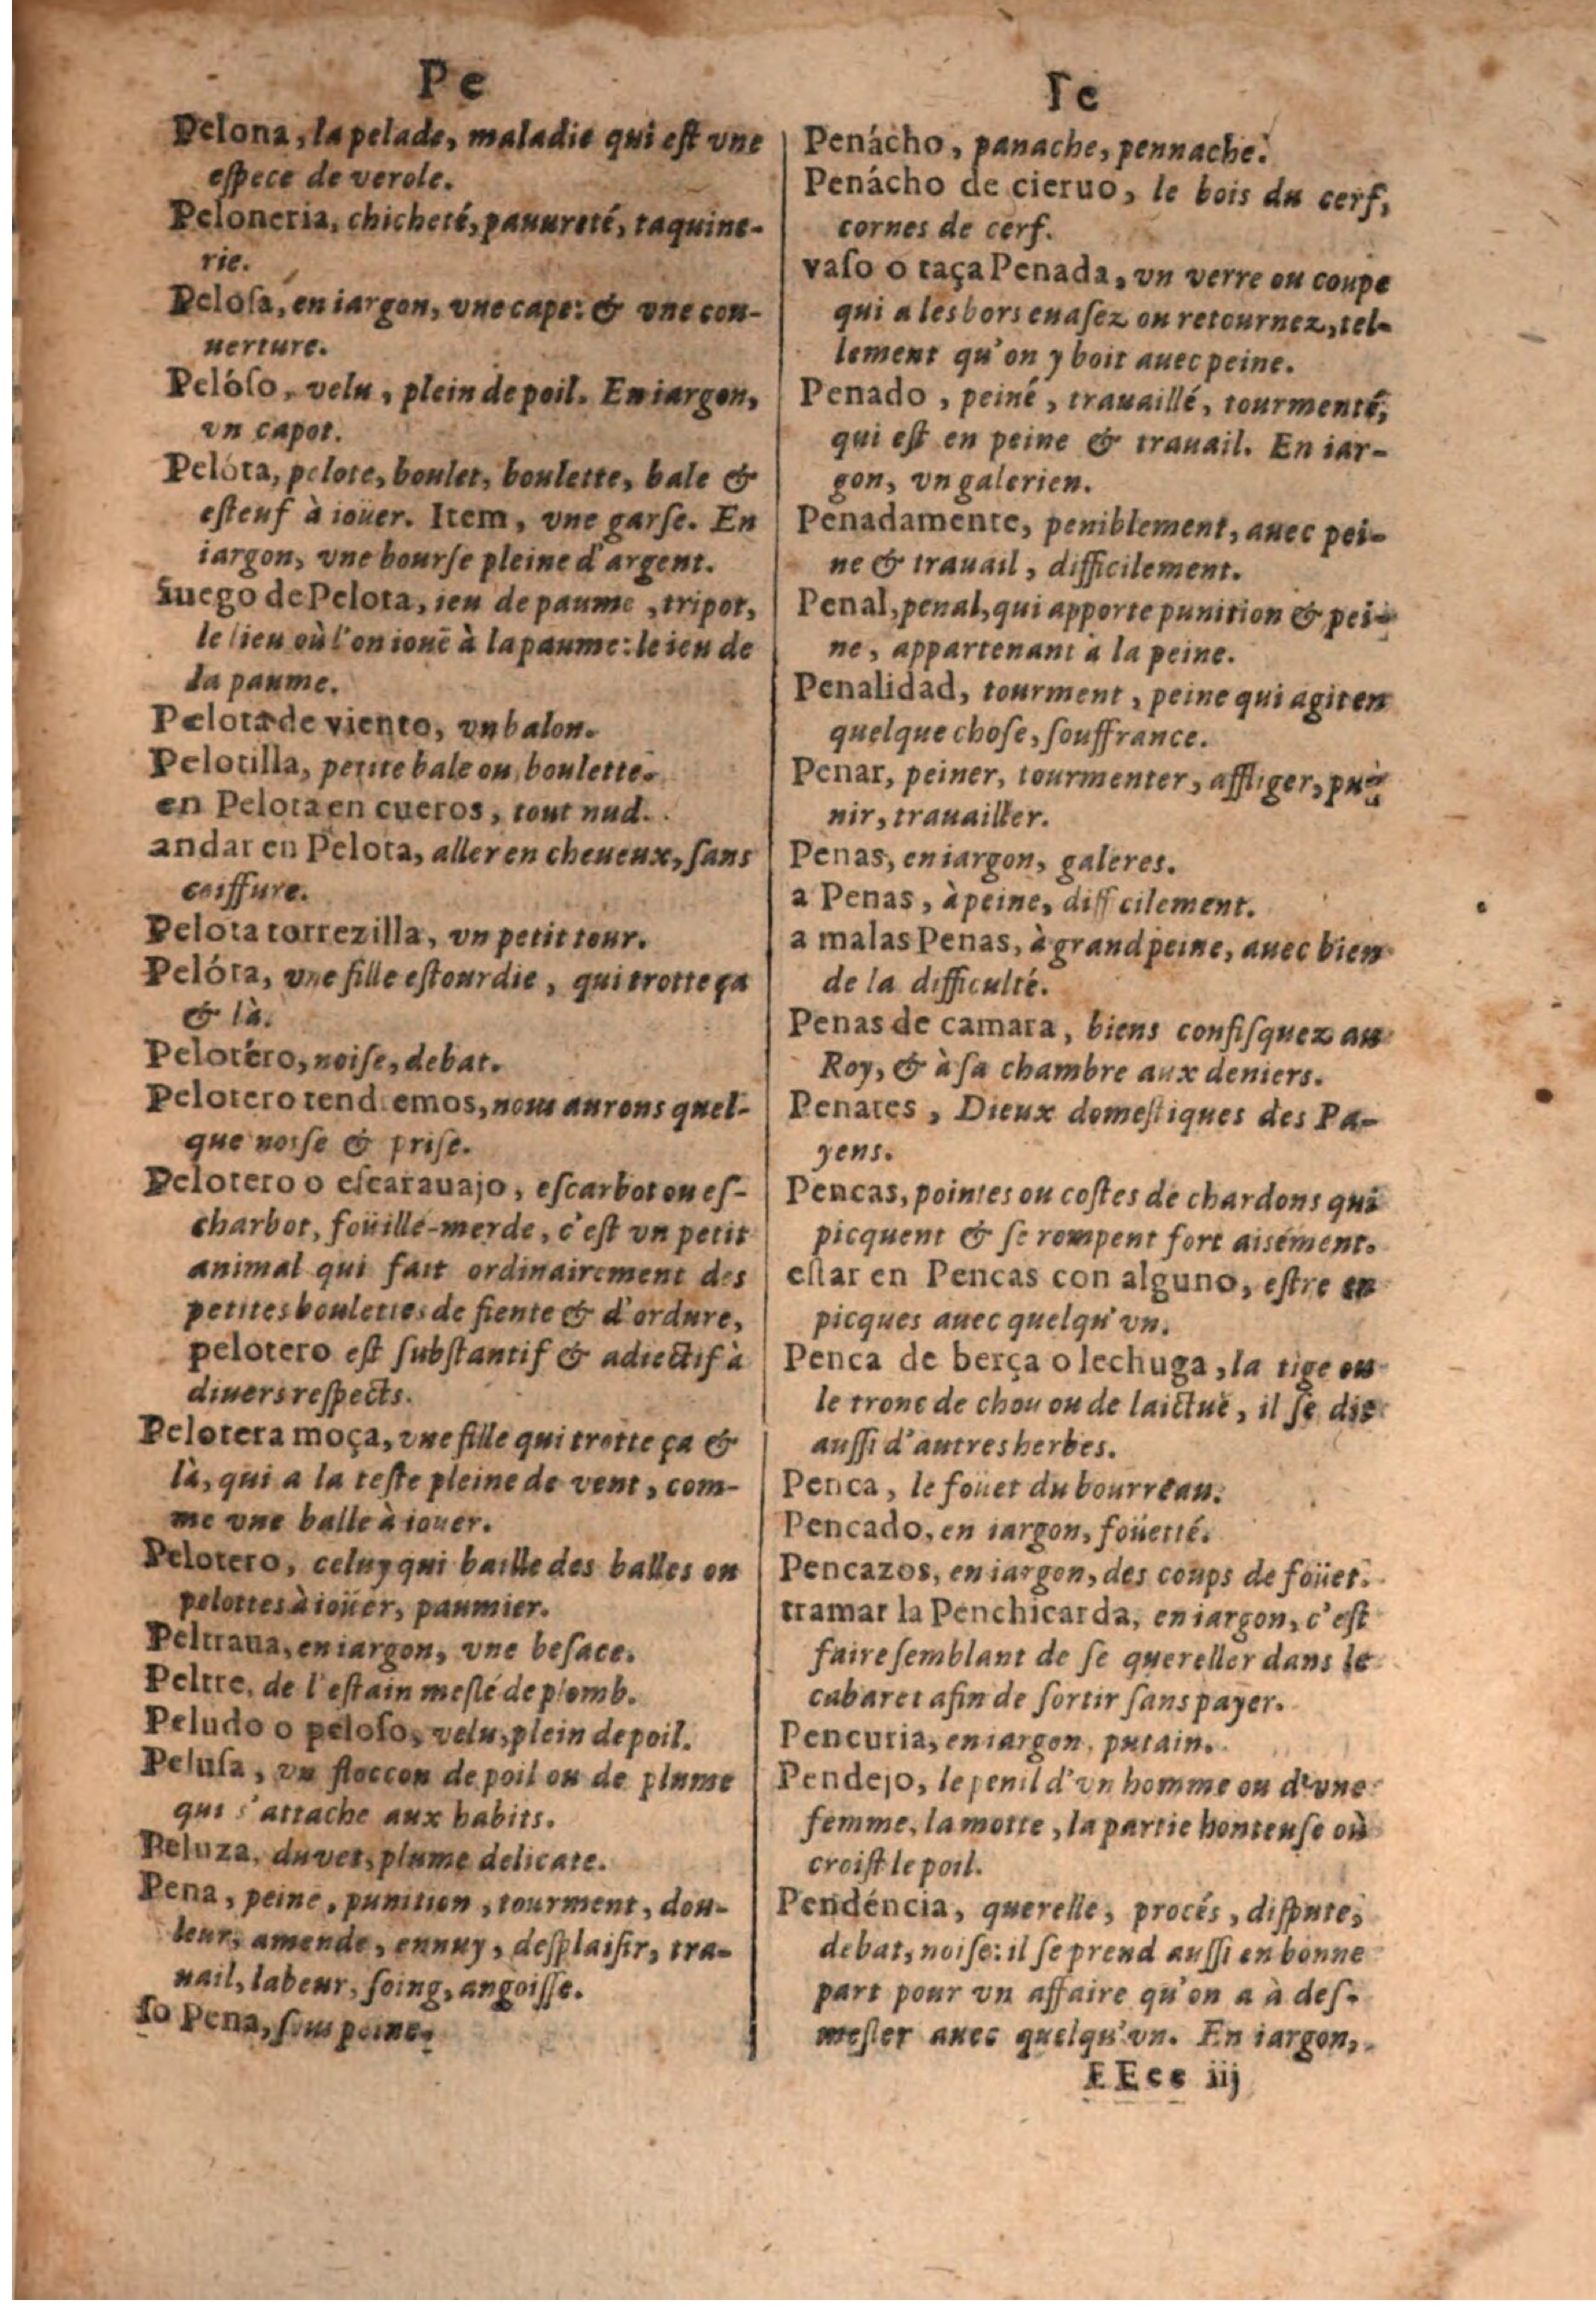 Pe
Pelona, la pelade, maladie qui eſt vne
eſpece de verole.
Peloneria, chicheté, pauureté, taquine-
rie.
Peloſa, en iargon, vne cape: & vne cou-
uerture.
Pelóſo, velu, plein de poil. En iargon,
vn capot.
Pelóta, pelote, boulet, boulette, bale &
eſteuf à ioüer. Item, vne garſe. En
iargon, vne bourſe pleine d'argent.
Iuego de Pelota, ieu de paume, tripot,
le lieu où l'on iouë à la paume: le ieu de
la paume.
Pelota de viento, vn balon.
Pelotilla, petite bale ou boulette.
en Pelota en cueros, tout nud.
andar en Pelota, aller en cheueux, ſans
coiffure.
Pelota torrezilla, vn petit tour.
Pelóta, vne fille eſtourdie, qui trotte ça
& là.
Pelotéro, noiſe, debat.
Pelotero tendremos, nous aurons quel-
que noiſe & priſe.
Pelotero o eſcarauajo, eſcarbot ou eſ-
charbot, foüille-merde, c'eſt vn petit
animal qui fait ordinairement des
petites boulettes de fiente & d'ordure,
pelotero eſt ſubſtantif & adiectif à
diuers reſpects.
Pelotera moça, vne fille qui trotte ça &
là, qui a la teſte pleine de vent, com-
me vne balle à iouer.
Pelotero, celuy qui baille des balles ou
pelottes à ioüer, paumier.
Peltraua, en iargon, vne beſace.
Peltre, de l'eſtain meſlé de plomb.
Peludo o peloſo, velu, plein de poil.
Peluſa, vn floccon de poil ou de plume
qui s'attache aux habits.
Peluza, duvet, plume delicate.
Pena, peine, punition, tourment, dou-
leur, amende, ennuy, deſplaiſir, tra-
uail, labeur, ſoing, angoiſſe.
ſo Pena, ſous peine.
Pe
Penácho, panache, pennache.
Penácho de cieruo, le bois du cerf,
cornes de cerf.
vaſo o taça Penada, vn verre ou coupe
qui a les bors euaſez ou retournez, tel-
lement qu'on y boit auec peine.
Penado, peiné, trauaillé, tourmenté,
qui eſt en peine & trauail. En iar-
gon, vn galerien.
Penadamente, peniblement, auec pei-
ne & trauail, difficilement.
Penal, penal, qui apporte punition & pei-
ne, appartenant à la peine.
Penalidad, tourment, peine qui agit en
quelque choſe, ſouffrance.
Penar, peiner, tourmenter, affliger, pu-
nir, trauailler.
Penas, en iargon, galeres.
a Penas, à peine, difficilement.
a malas Penas, à grand peine, auec bien
de la difficulté.
Penas de camara, biens confiſquez au
Roy, & à ſa chambre aux deniers.
Penates, Dieux domeſtiques des Pa-
yens.
Pencas, pointes ou coſtes de chardons qui
picquent & ſe rompent fort aisément.
eſtar en Pencas con alguno, eſtre en
picques auec quelqu'vn.
Penca de berça o lechuga, la tige ou
le tronc de chou ou de laictuë, il ſe dit
auſſi d'autres herbes.
Penca, le foüet du bourreau.
Pencado, en iargon, foüetté.
Pencazos, en iargon, des coups de foüet.
tramar la Penchicarda, en iargon, c'eſt
faire ſemblant de ſe quereller dans le
cabaret afin de ſortir ſans payer.
Pencuria, en iargon, putain.
Pendejo, le penil d'vn homme ou d'vne
femme, la motte, la partie honteuſe où
croiſt le poil.
Pendéncia, querelle, procés, diſpute,
debat, noiſe: il ſe prend auſſi en bonne
part pour vn affaire qu'on a à deſ-
meſler auec quelqu'vn. En iargon,
EEee iij